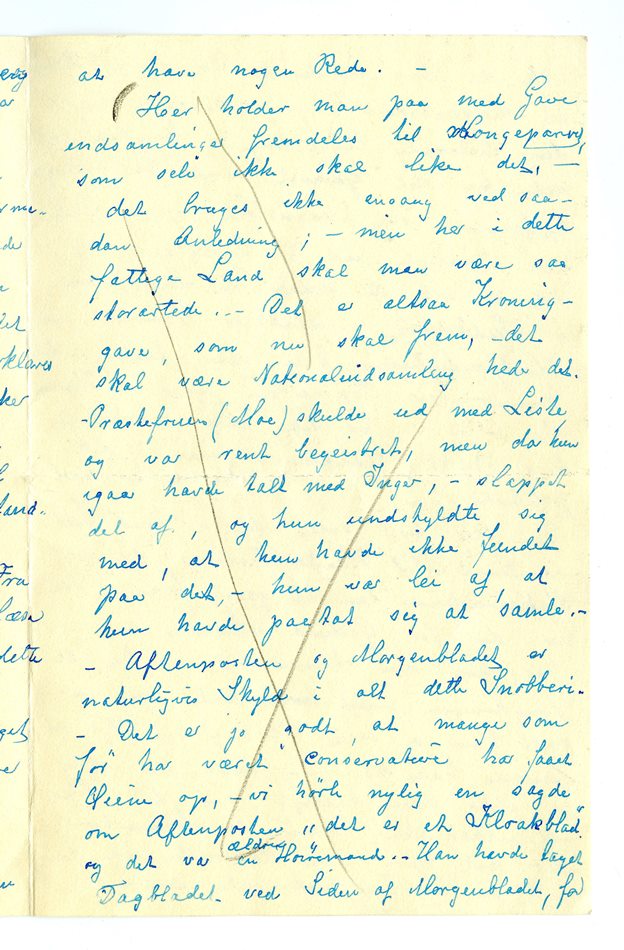 at have nogen Rede. –
Her holder man paa med Gave
indsamlinger fremdeles til Kongeparret,
som selv ikke skal like det, –
det bruges ikke engang ved saa-
dan Anledning; – men her i dette
fattige Land skal man være saa
storartede. – Det er altsaa Kronings-
gave, som nu skal frem, – det
skal være Nationalindsamling hede det.
– Præstefruen (Moe) skulde ud med Liste,
og var rent begeistret, men da hun
igaar havde talt med Inger, – slappet
det af, og hun undskyldte sig
med, at hun havde ikke fundet
paa det, – hun var lei af, at
hun havde paatat sig at samle. –
– Aftenposten og Morgenbladet er
naturligvis Skyld i alt dette Snobberi.
– Det er jo godt, at mange som
før har været conservative har faaet
Øiene op, – vi hørte nylig en sagde
om Aftenposten "det er et Kloakblad"
og det va en ældre Høiremand. – Han havde taget
Dagbladet ved Siden af Morgenbladet, for
ket
land.
Fra
læse
dette